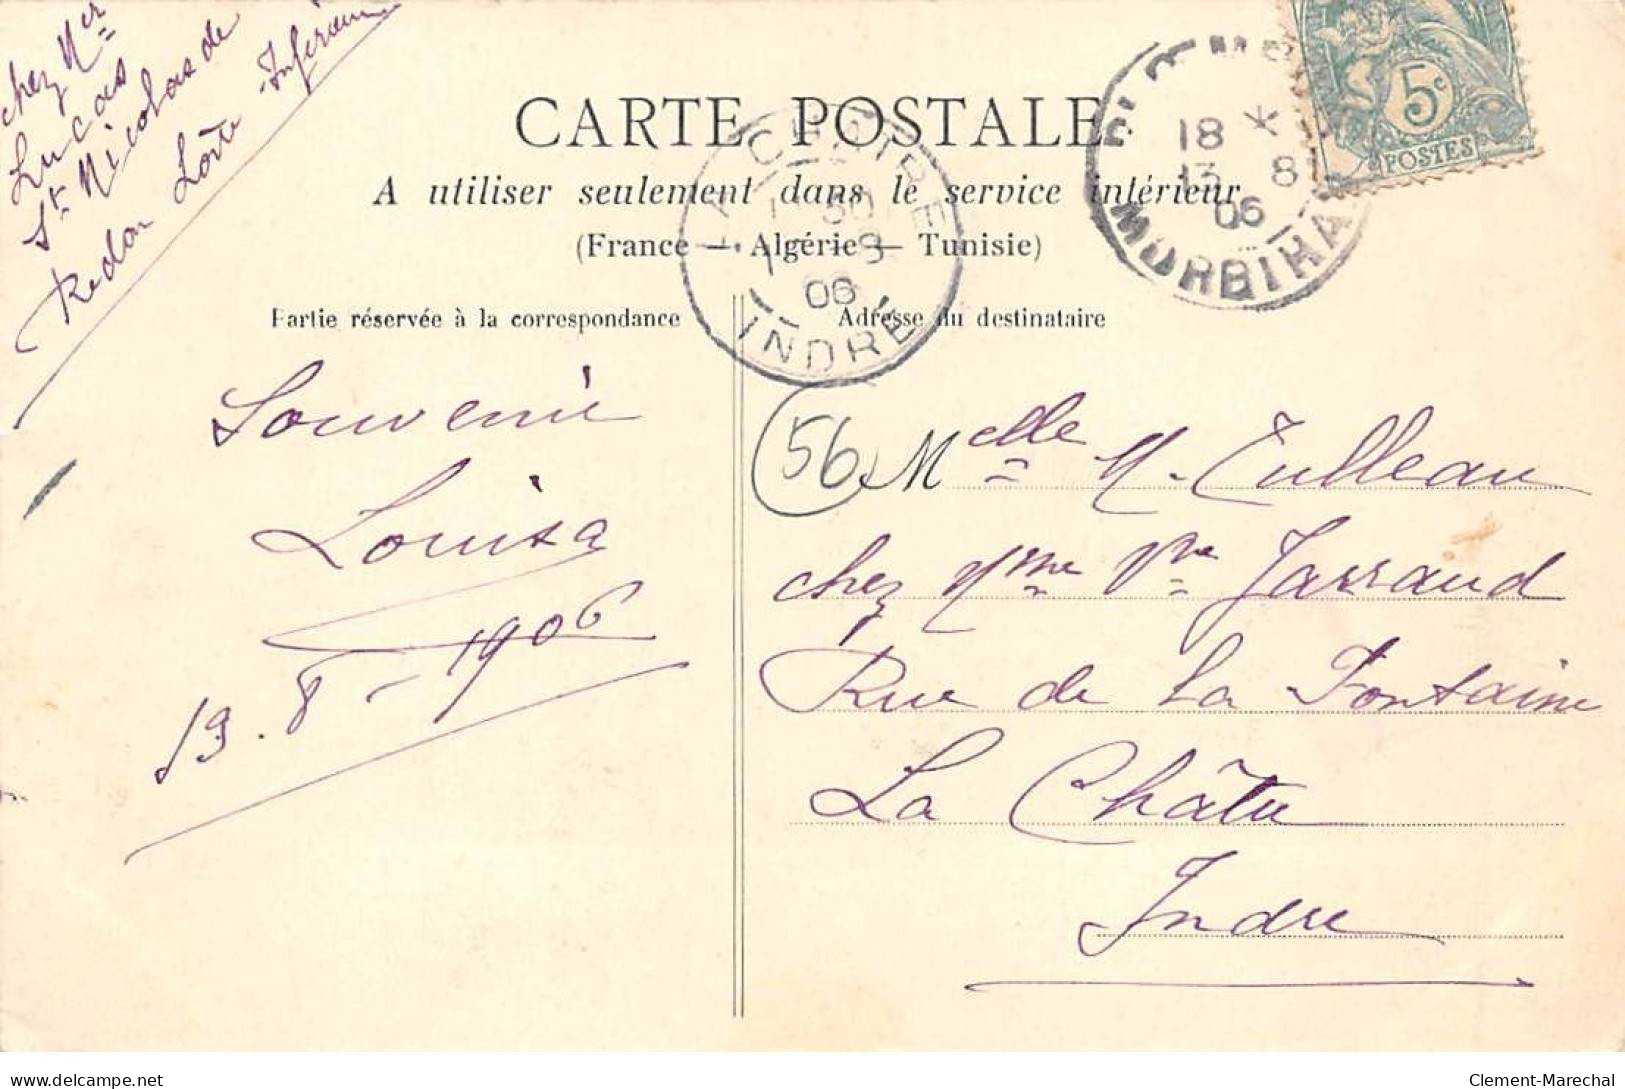 chez Mr
Lucas
St. Nicolas de
Redon Loire Inférieure
CARTE POSTALE
A utiliser seulement dans le service intérieur
(France — Algérie — Tunisie)
Partie réservée à la correspondance
Adresse du destinataire
LA CHATRE
30
06
INDRE
18 *
13 8
06
MORBIHAN
5c
POSTES
Souvenir
Louisa
13.8-1906
56
Melle M. Tulleau
chez Mme Vve Jarraud
Rue de La Fontaine
La Châtre
Indre
Clement-Marechal